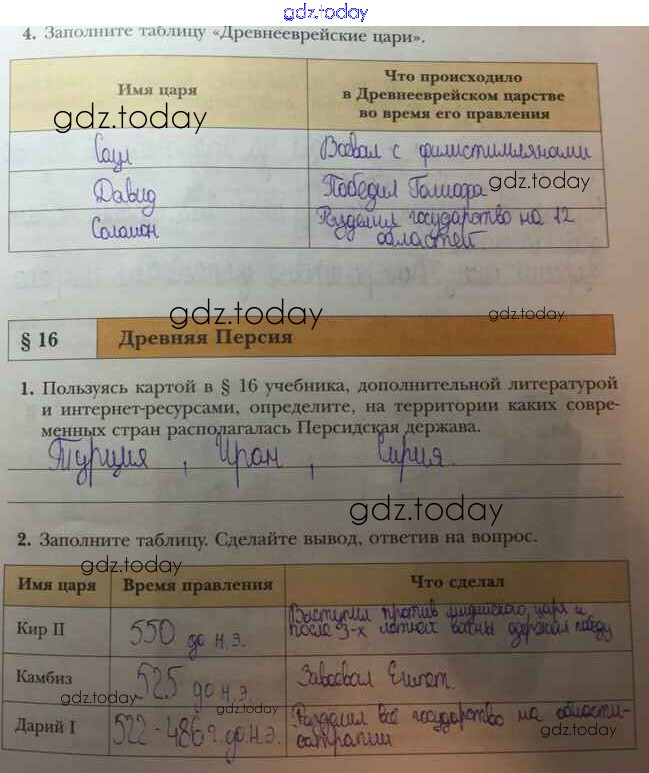 gdz.today
4. Заполните таблицу «Древнееврейские цари».
Имя царя
Что происходило
в Древнееврейском царстве
во время его правления
gdz.today
Саул
Воевал с филистимлянами
Давид
Победил Голиафа
gdz.today
Соломон
Разделил государство на 12
областей
gdz.today
gdz.today
§ 16
Древняя Персия
1. Пользуясь картой в § 16 учебника, дополнительной литературой
и интернет-ресурсами, определите, на территории каких совре-
менных стран располагалась Персидская держава.
Турция, Иран, Сирия.
gdz.today
2. Заполните таблицу. Сделайте вывод, ответив на вопрос.
Имя царя
Время правления
Что сделал
Кир II
550 до н.э.
Выступил против мидийского царя и
после 3-х летней войны одержал победу
Камбиз
525 до н.э.
Завоевал Египет.
gdz.today
gdz.today
Дарий I
522-486 г. до н.э.
Разделил всё государство на области-
сатрапии
gdz.today